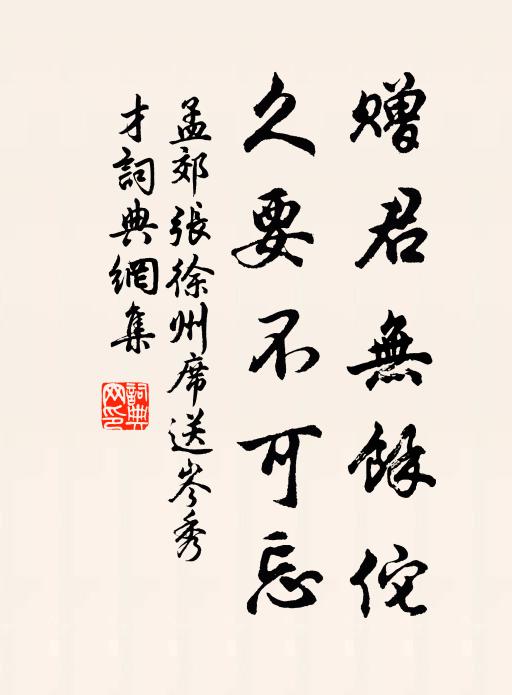 赠君無餘佗
久要不可忘
孟郊張徐州席送岑秀
才詞典網集
詞典网印